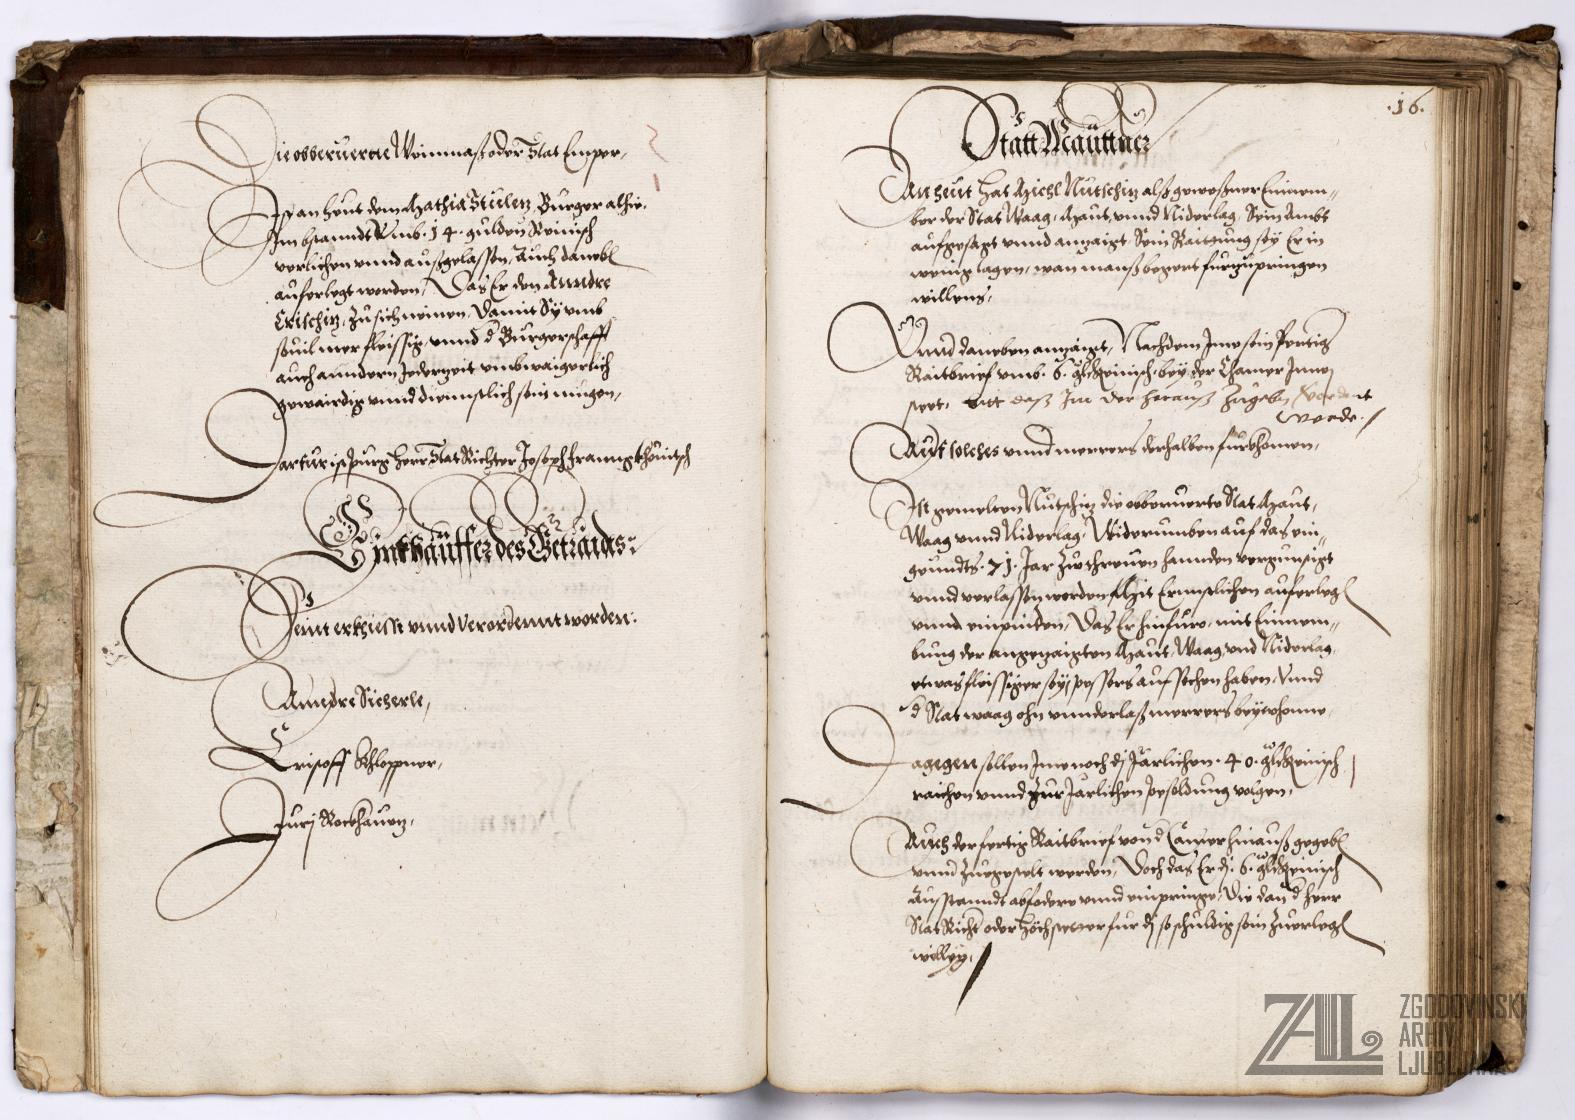 Die obberuerte Weinmaß oder Stat Emper,
Ist an heut dem Mathia Stulenz, Burger alhie,
Im bstanndt Umb .14. gulden Reinisch
verlichen unnd außgelassen, Auch danebn
auferlegt worden, Das Er den Anndre
Crischiz, Zu sich nemen, Damit Sy umb
souil mer fleissig, unnd d Burgerschafft
auch anndern Jederzeit umbwaigerlich
gewärdig unnd dienstlich sein mügen,
Darfur ist Purg Herr Stat Richter Joseph
Einkhäuffer des Getraids:
Seint erkhiesst unnd Verordennt worden:
Anndre Sicherle,
Cristoff Schloppner,
Jurj Rockhauenz,
.16.
Statt Mauttner
An heut hat Michl Nutschitz alß gewessner Einnem-
ber der Stat Waag, Maut, unnd Niderlag, Sein Ambt
aufgesagt unnd anzaigt, Sein Raittung sey Er in
wenig tagen, wan manß begert furzupringen
willens,
Unnd daneben anzaigt, Nachdem Ime sein Fertig
Raitbrief umb .6. gld Reinisch, bey der Chamer Inne
steet, bitt daß Im der herauß Zugebn Verdent
werde.
Auf solches unnd merrers derhalben furkhomen,
Ist gemelten Nutschitz die obberuerte Stat Maut,
Waag unnd Niderlag, Widerumben auf das ein-
geundts .71. Jar Zu threuen hannden vergunstigt
unnd verlassen worden Mit Ernnstlichen auferlegn
unnd einpinden, Das Er hinfuro, mit Einnem-
bung der angezaigten Maut, Waag und Niderlag,
etwas fleissiger sey, pessers aufsechen haben, Unnd
d Stat waag ohn unnderlaß merrers beywhonne,
Dagegen sollen Ime noch dj Järlichen .40. gld Reinisch
raichen unnd zur Järlichen pesoldung volgen,
Auch der fertig Raitbrief von d Camer hinauß gegebn
unnd Zuegestelt werden, Doch das Er dj .6. gld Reinisch
Ausstanndt abfodere unnd einpringe, Die dan d herr
Stat Richt oder Hochstetter fur dj so schuldig sein Zuerlegn
willig,
ZAL
ZGODOVINSKI
ARHIV
LJUBLJANA